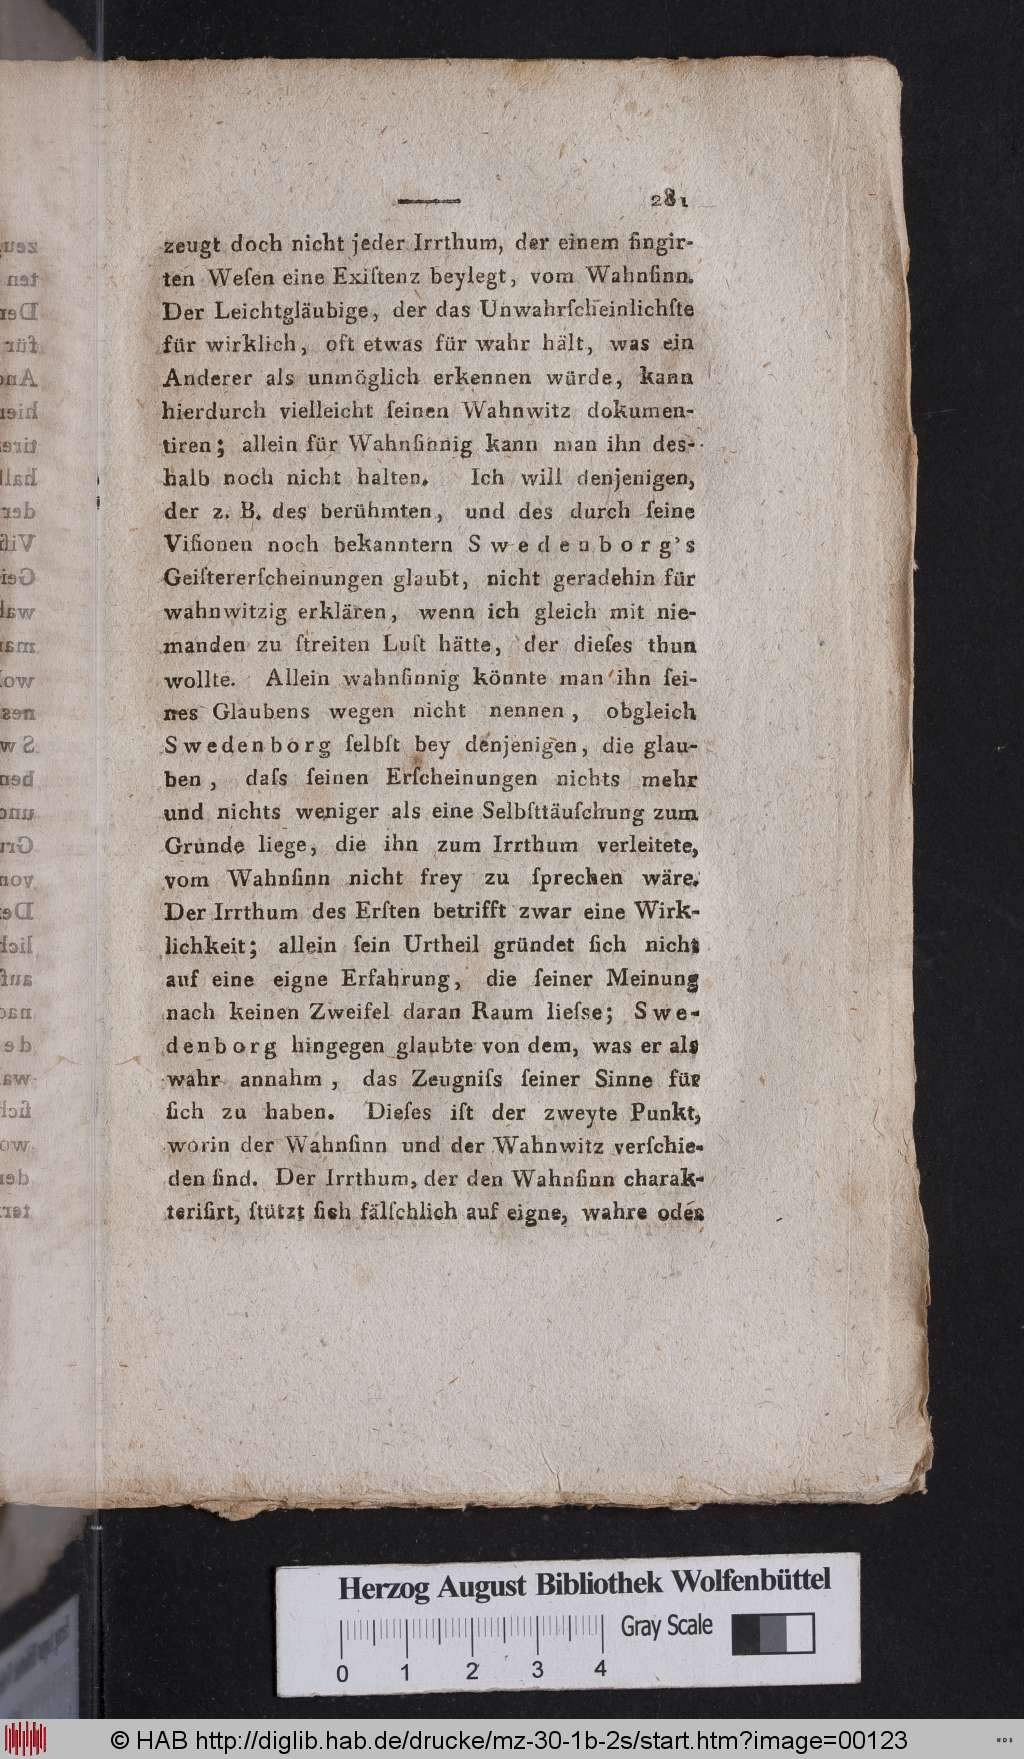 281
zeugt doch nicht jeder Irrthum, der einem fingir-
ten Weſen eine Exiſtenz beylegt, vom Wahnſinn.
Der Leichtgläubige, der das Unwahrſcheinlichſte
für wirklich, oft etwas für wahr hält, was ein
Anderer als unmöglich erkennen würde, kann
hierdurch vielleicht ſeinen Wahnwitz dokumen-
tiren; allein für Wahnſinnig kann man ihn des-
halb noch nicht halten. Ich will denjenigen,
der z. B. des berühmten, und des durch ſeine
Viſionen noch bekanntern Swedenborg's
Geiſtererſcheinungen glaubt, nicht geradehin für
wahnwitzig erklären, wenn ich gleich mit nie-
manden zu ſtreiten Luſt hätte, der dieſes thun
wollte. Allein wahnſinnig könnte man ihn ſei-
nes Glaubens wegen nicht nennen, obgleich
Swedenborg ſelbſt bey denjenigen, die glau-
ben, daſs ſeinen Erſcheinungen nichts mehr
und nichts weniger als eine Selbſttäuſchung zum
Grunde liege, die ihn zum Irrthum verleitete,
vom Wahnſinn nicht frey zu ſprechen wäre.
Der Irrthum des Erſten betrifft zwar eine Wirk-
lichkeit; allein ſein Urtheil gründet ſich nicht
auf eine eigne Erfahrung, die ſeiner Meinung
nach keinen Zweifel daran Raum lieſse; Swe-
denborg hingegen glaubte von dem, was er als
wahr annahm, das Zeugniſs ſeiner Sinne für
ſich zu haben. Dieſes iſt der zweyte Punkt,
worin der Wahnſinn und der Wahnwitz verſchie-
den ſind. Der Irrthum, der den Wahnſinn charak-
teriſirt, ſtützt ſich fälſchlich auf eigne, wahre oder
Herzog August Bibliothek Wolfenbüttel
Gray Scale
0 1 2 3 4
© HAB http://diglib.hab.de/drucke/mz-30-1b-2s/start.htm?image=00123